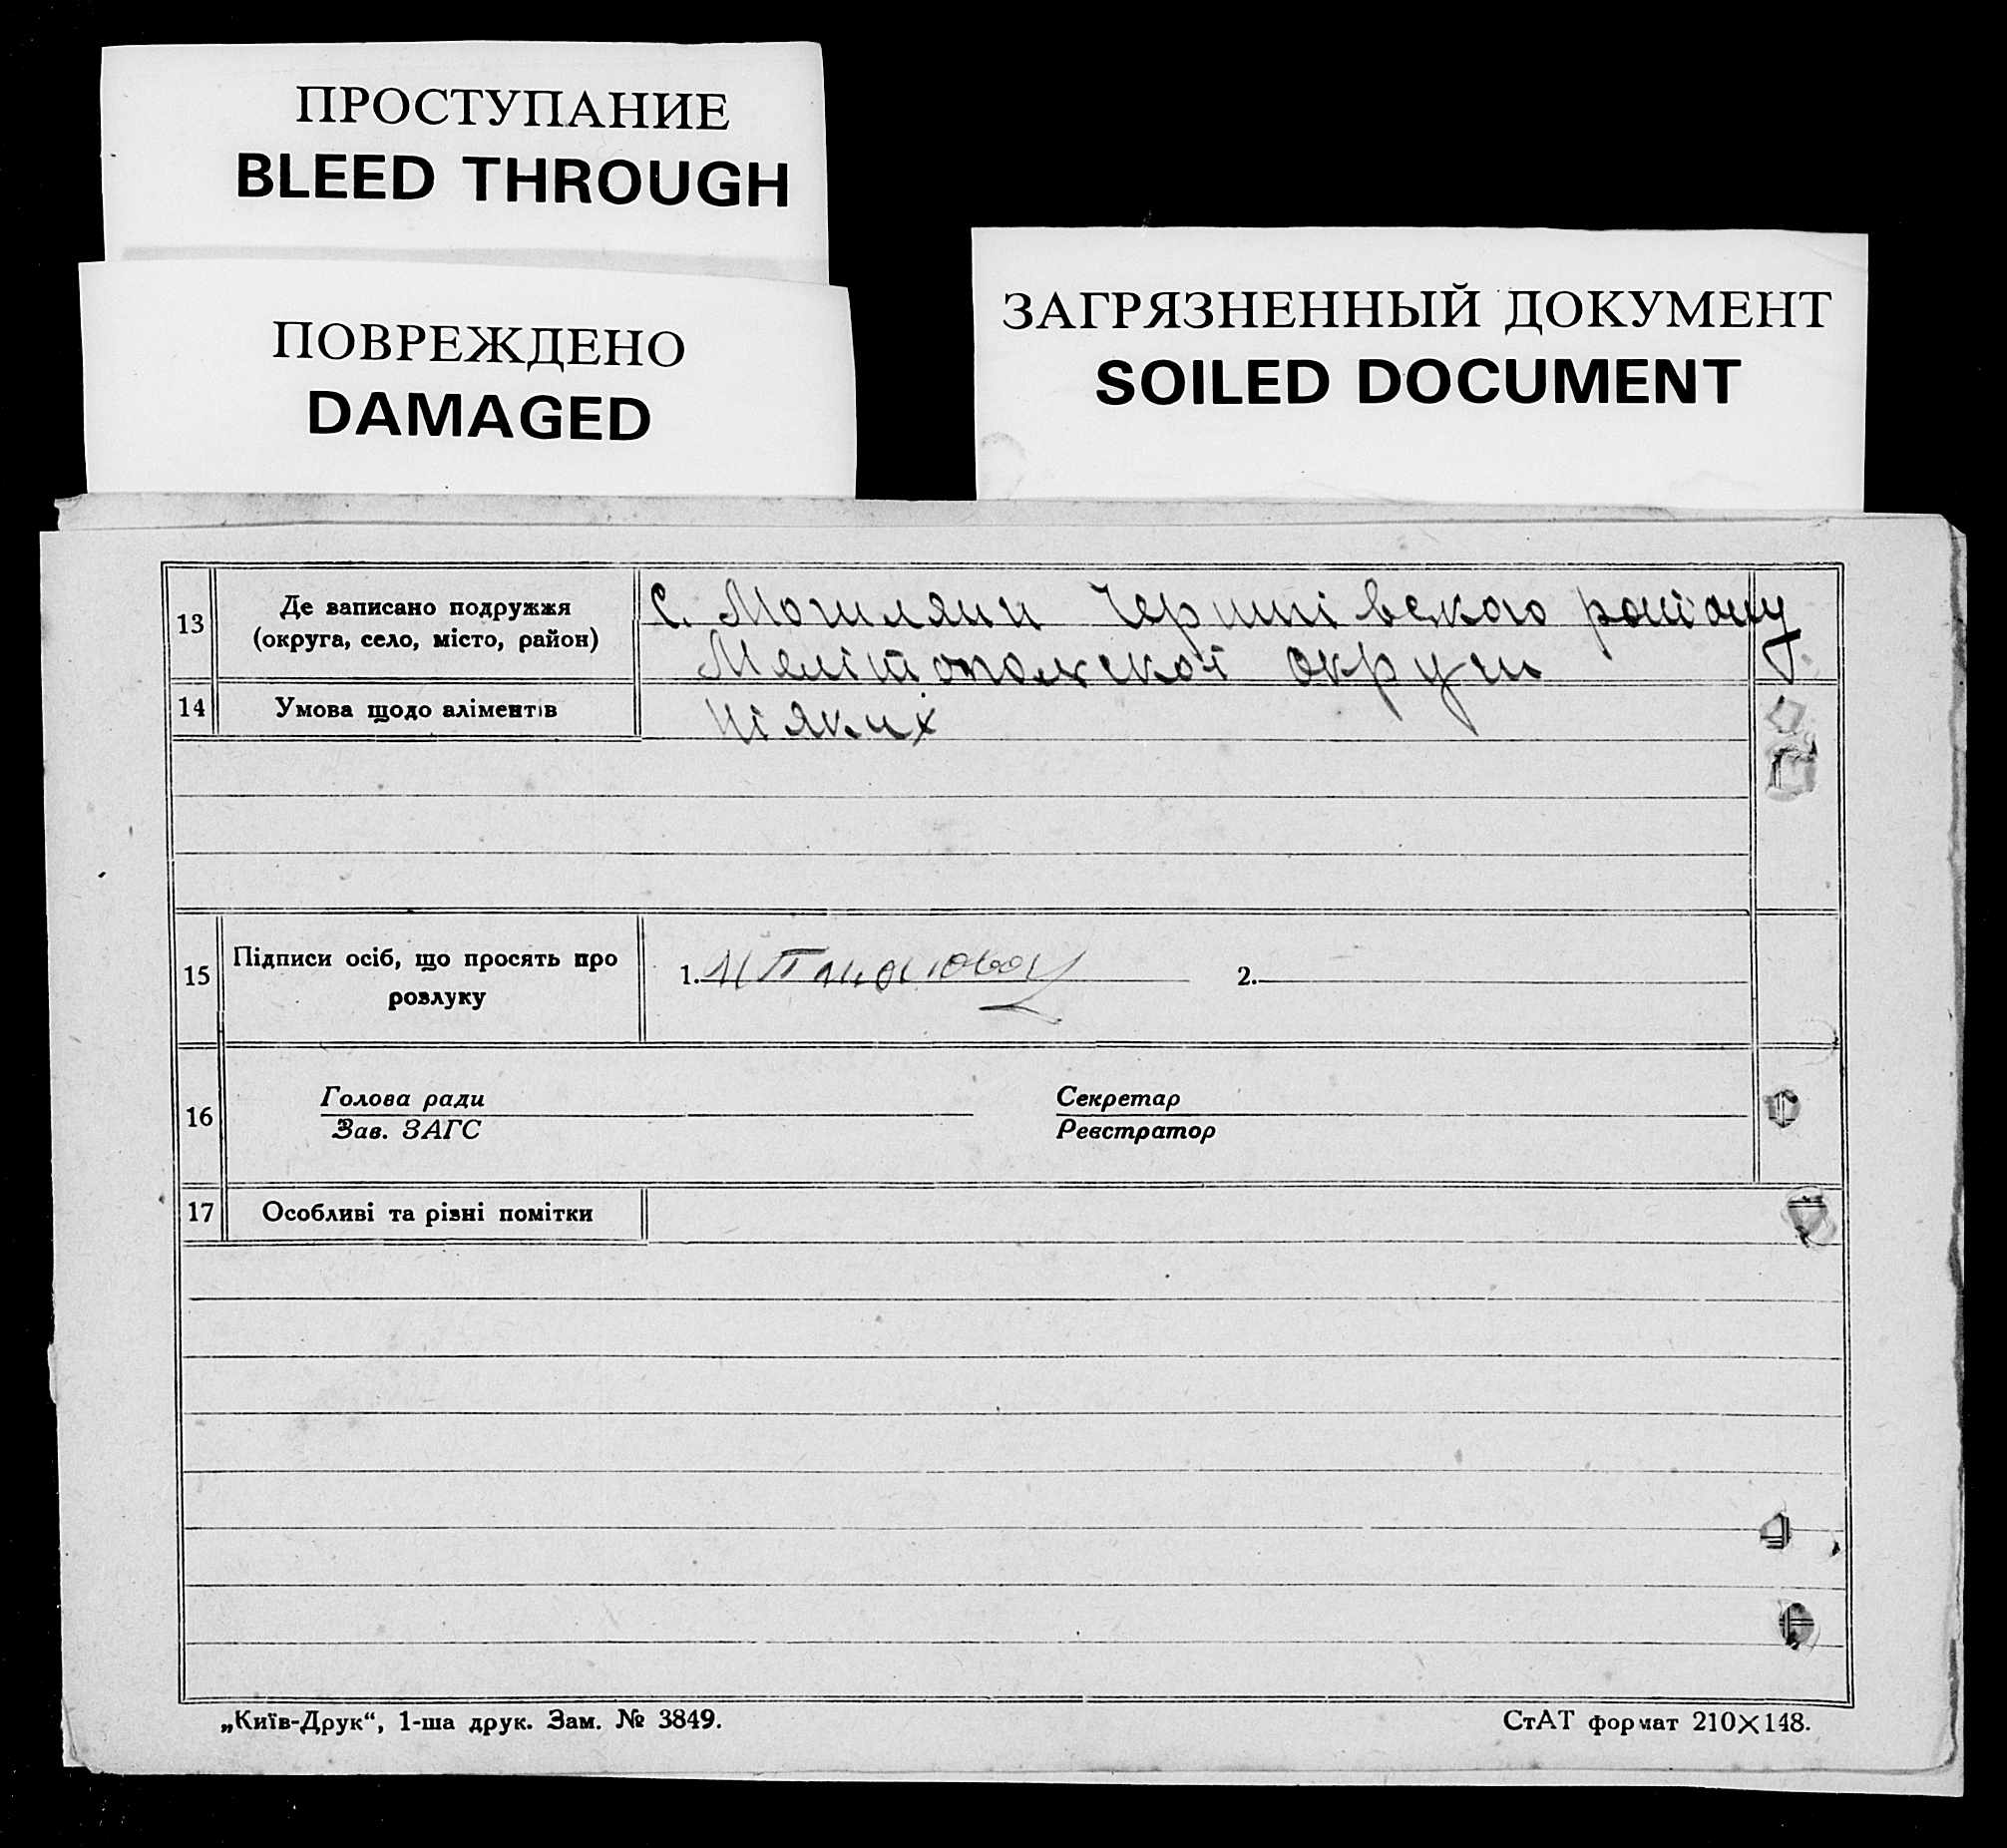 ПРОСТУПАНИЕ
BLEED THROUGH
ПОВРЕЖДЕНО
DAMAGED
ЗАГРЯЗНЕННЫЙ ДОКУМЕНТ
SOILED DOCUMENT
13
Де записано подружжя
(округа, село, місто, район)
С. Могиляни району
Мелітопольскої округи
14
Умова щодо аліментів
ніяких
15
Підписи осіб, що просять про
розлуку
1.
2.
16
Голова ради
Зав. ЗАГС
Секретар
Реєстратор
17
Особливі та різні помітки
„Київ-Друк“, 1-ша друк. Зам. № 3849.
СтАТ формат 210×148.